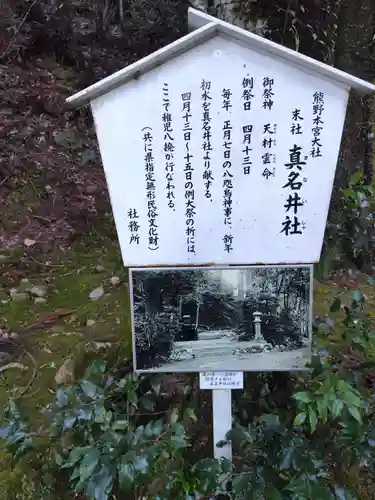 熊野本宮大社
末社 真名井社
まないしゃ
御祭神 天村雲命
例祭日 四月十三日
毎年、正月七日の八咫烏神事に、新年
初水を真名井社より献ずる。
四月十三日〜十五日の例大祭の折には、
ここで稚児八撥が行なわれる。
(共に県指定無形民俗文化財)
社務所